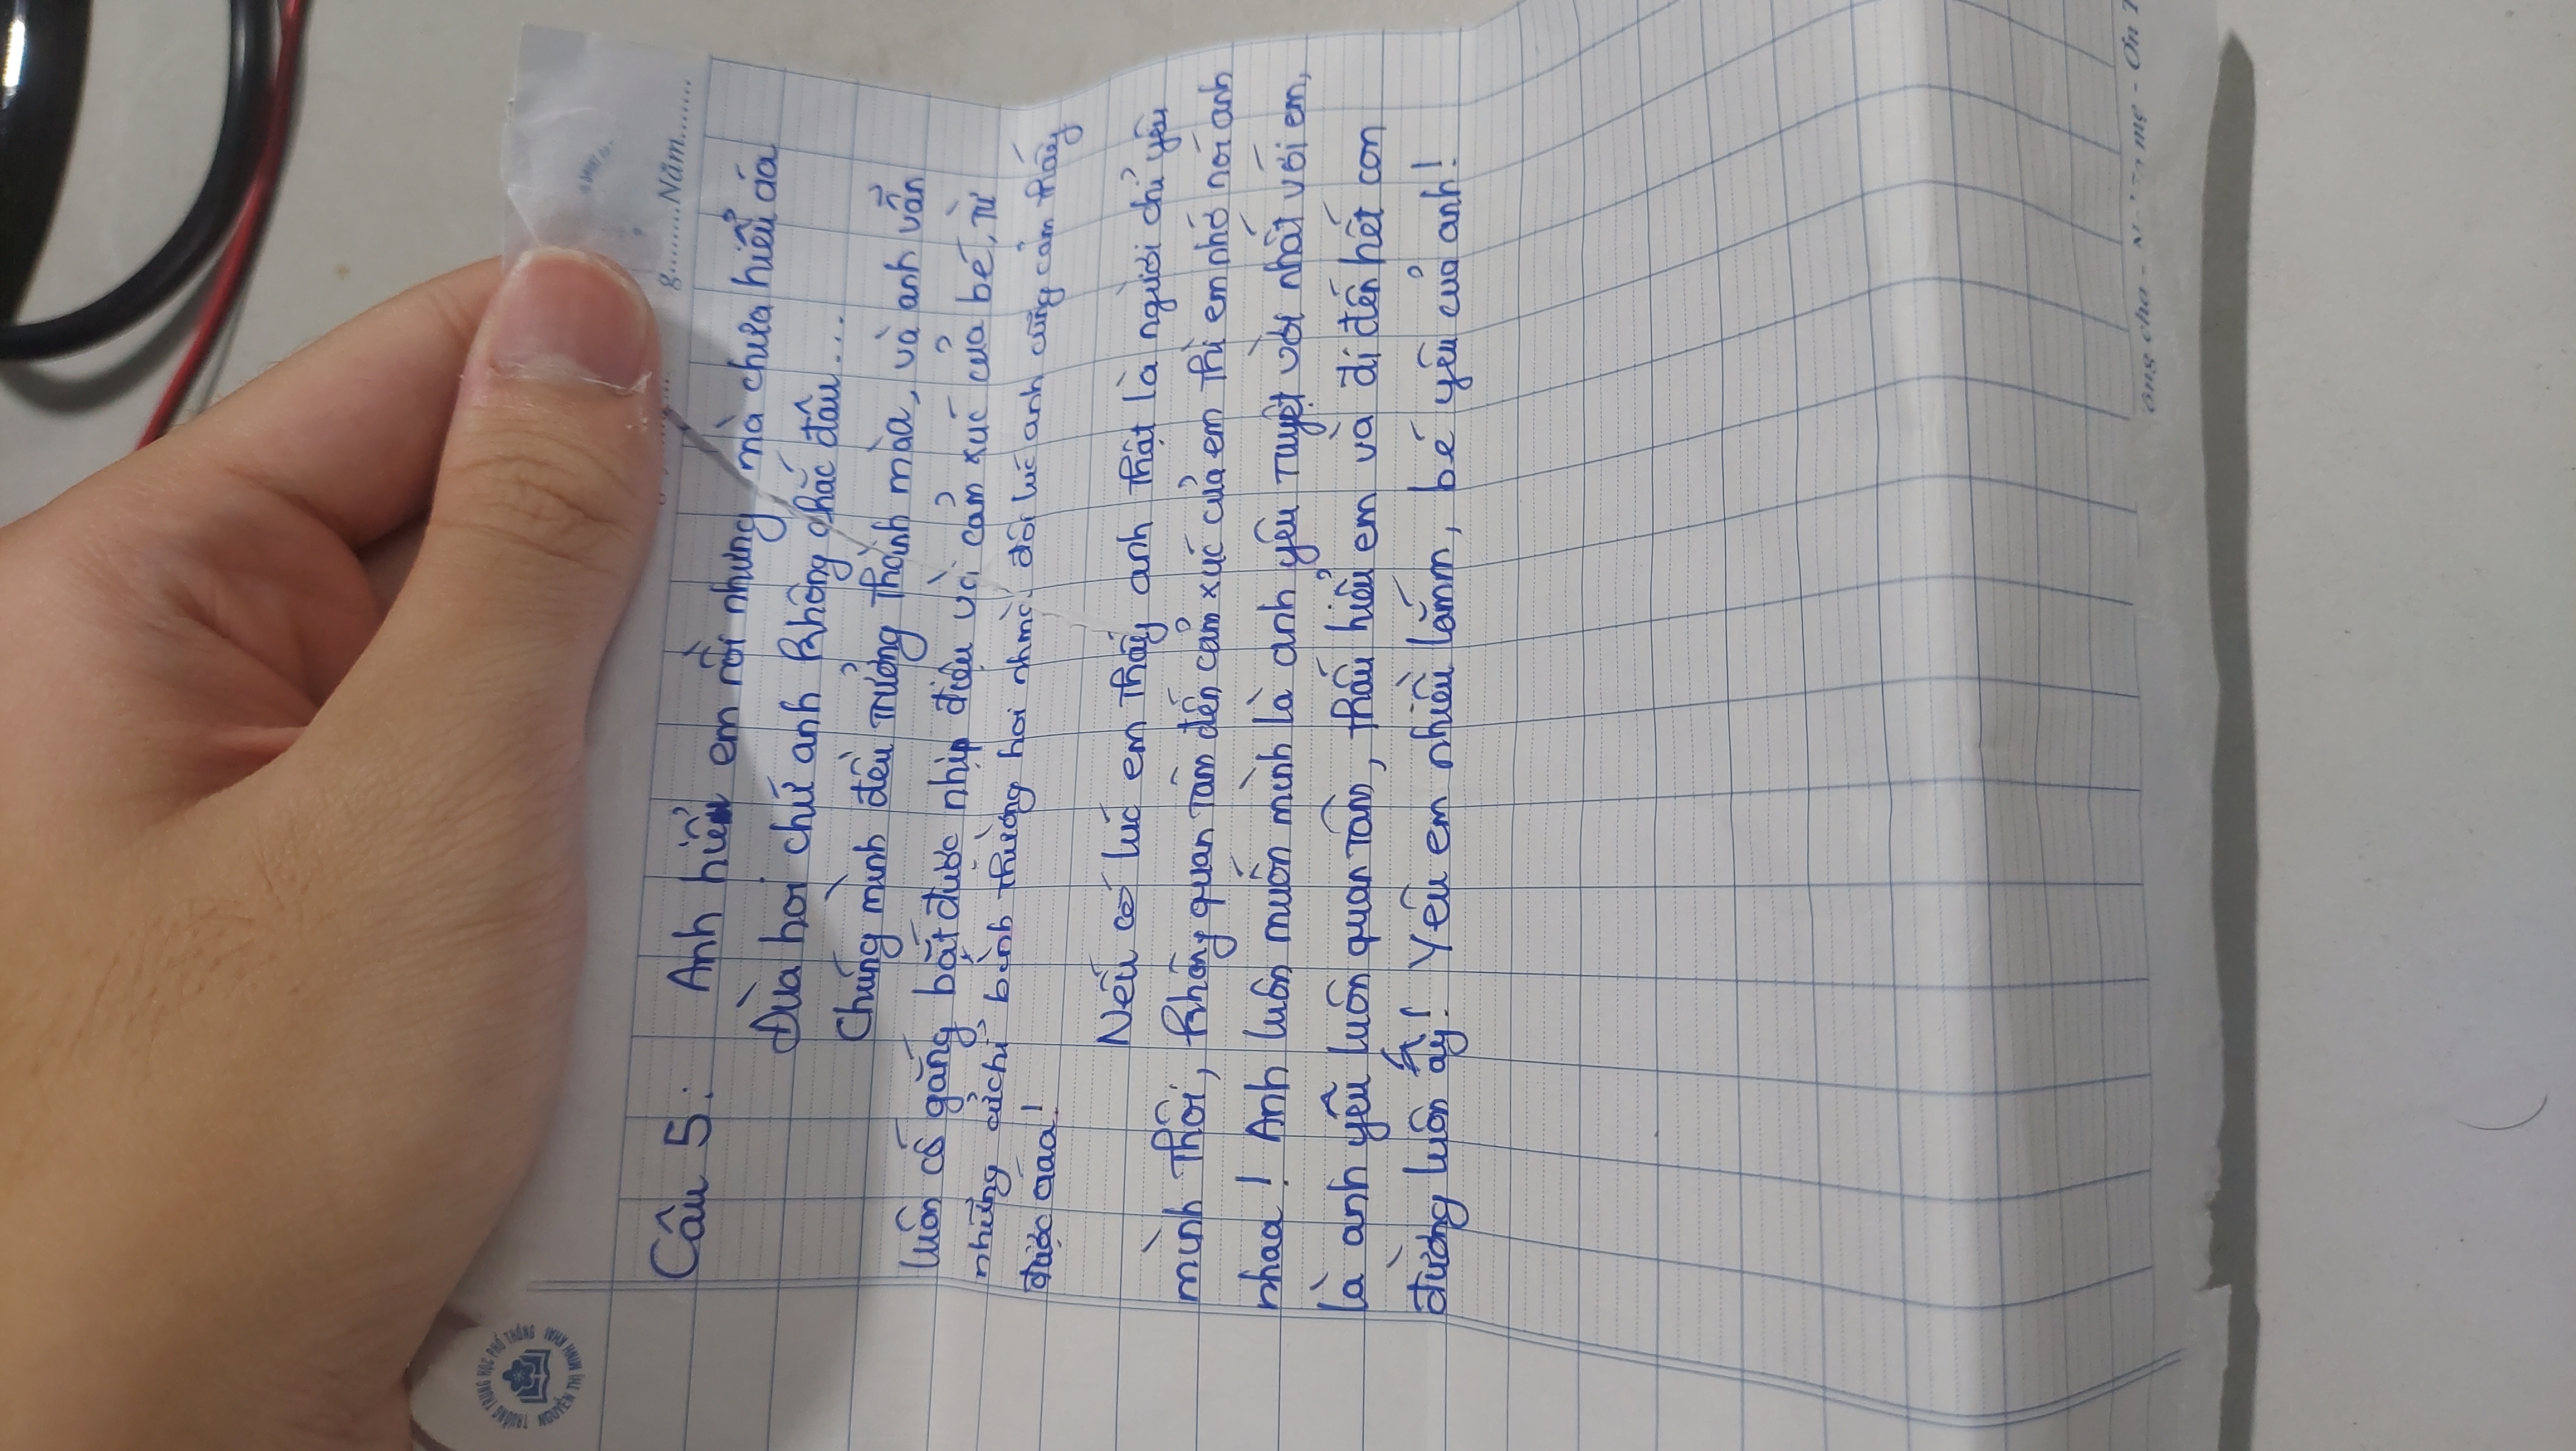 TRƯỜNG TRUNG HỌC PHỔ THÔNG
NGUYỄN THỊ MINH KHAI
g........Năm.......
Câu 5: Anh hiểu em rồi nhưng mà chưa hiểu áa
Đùa hoi chứ anh không chắc đâu...
Chúng mình đều trưởng thành màa, và anh vẫn
luôn cố gắng bắt được nhịp điệu và cảm xúc của bé, từ
những cử chỉ bình thường hoi nhmà đôi lúc anh cũng cảm thấy
được áaa!
Nếu có lúc em thấy anh thật là người chỉ yêu
mình thôi, không quan tâm đến cảm xúc của em thì em nhớ nói anh
nhaa! Anh luôn muốn mình là anh yêu tuyệt vời nhất với em,
là anh yêu luôn quan tâm, thấu hiểu em và đi đến hết con
đường luôn ấy! Yêu em nhiều lắmm, bé yêu của anh!
ông cha - mẹ - Ơn